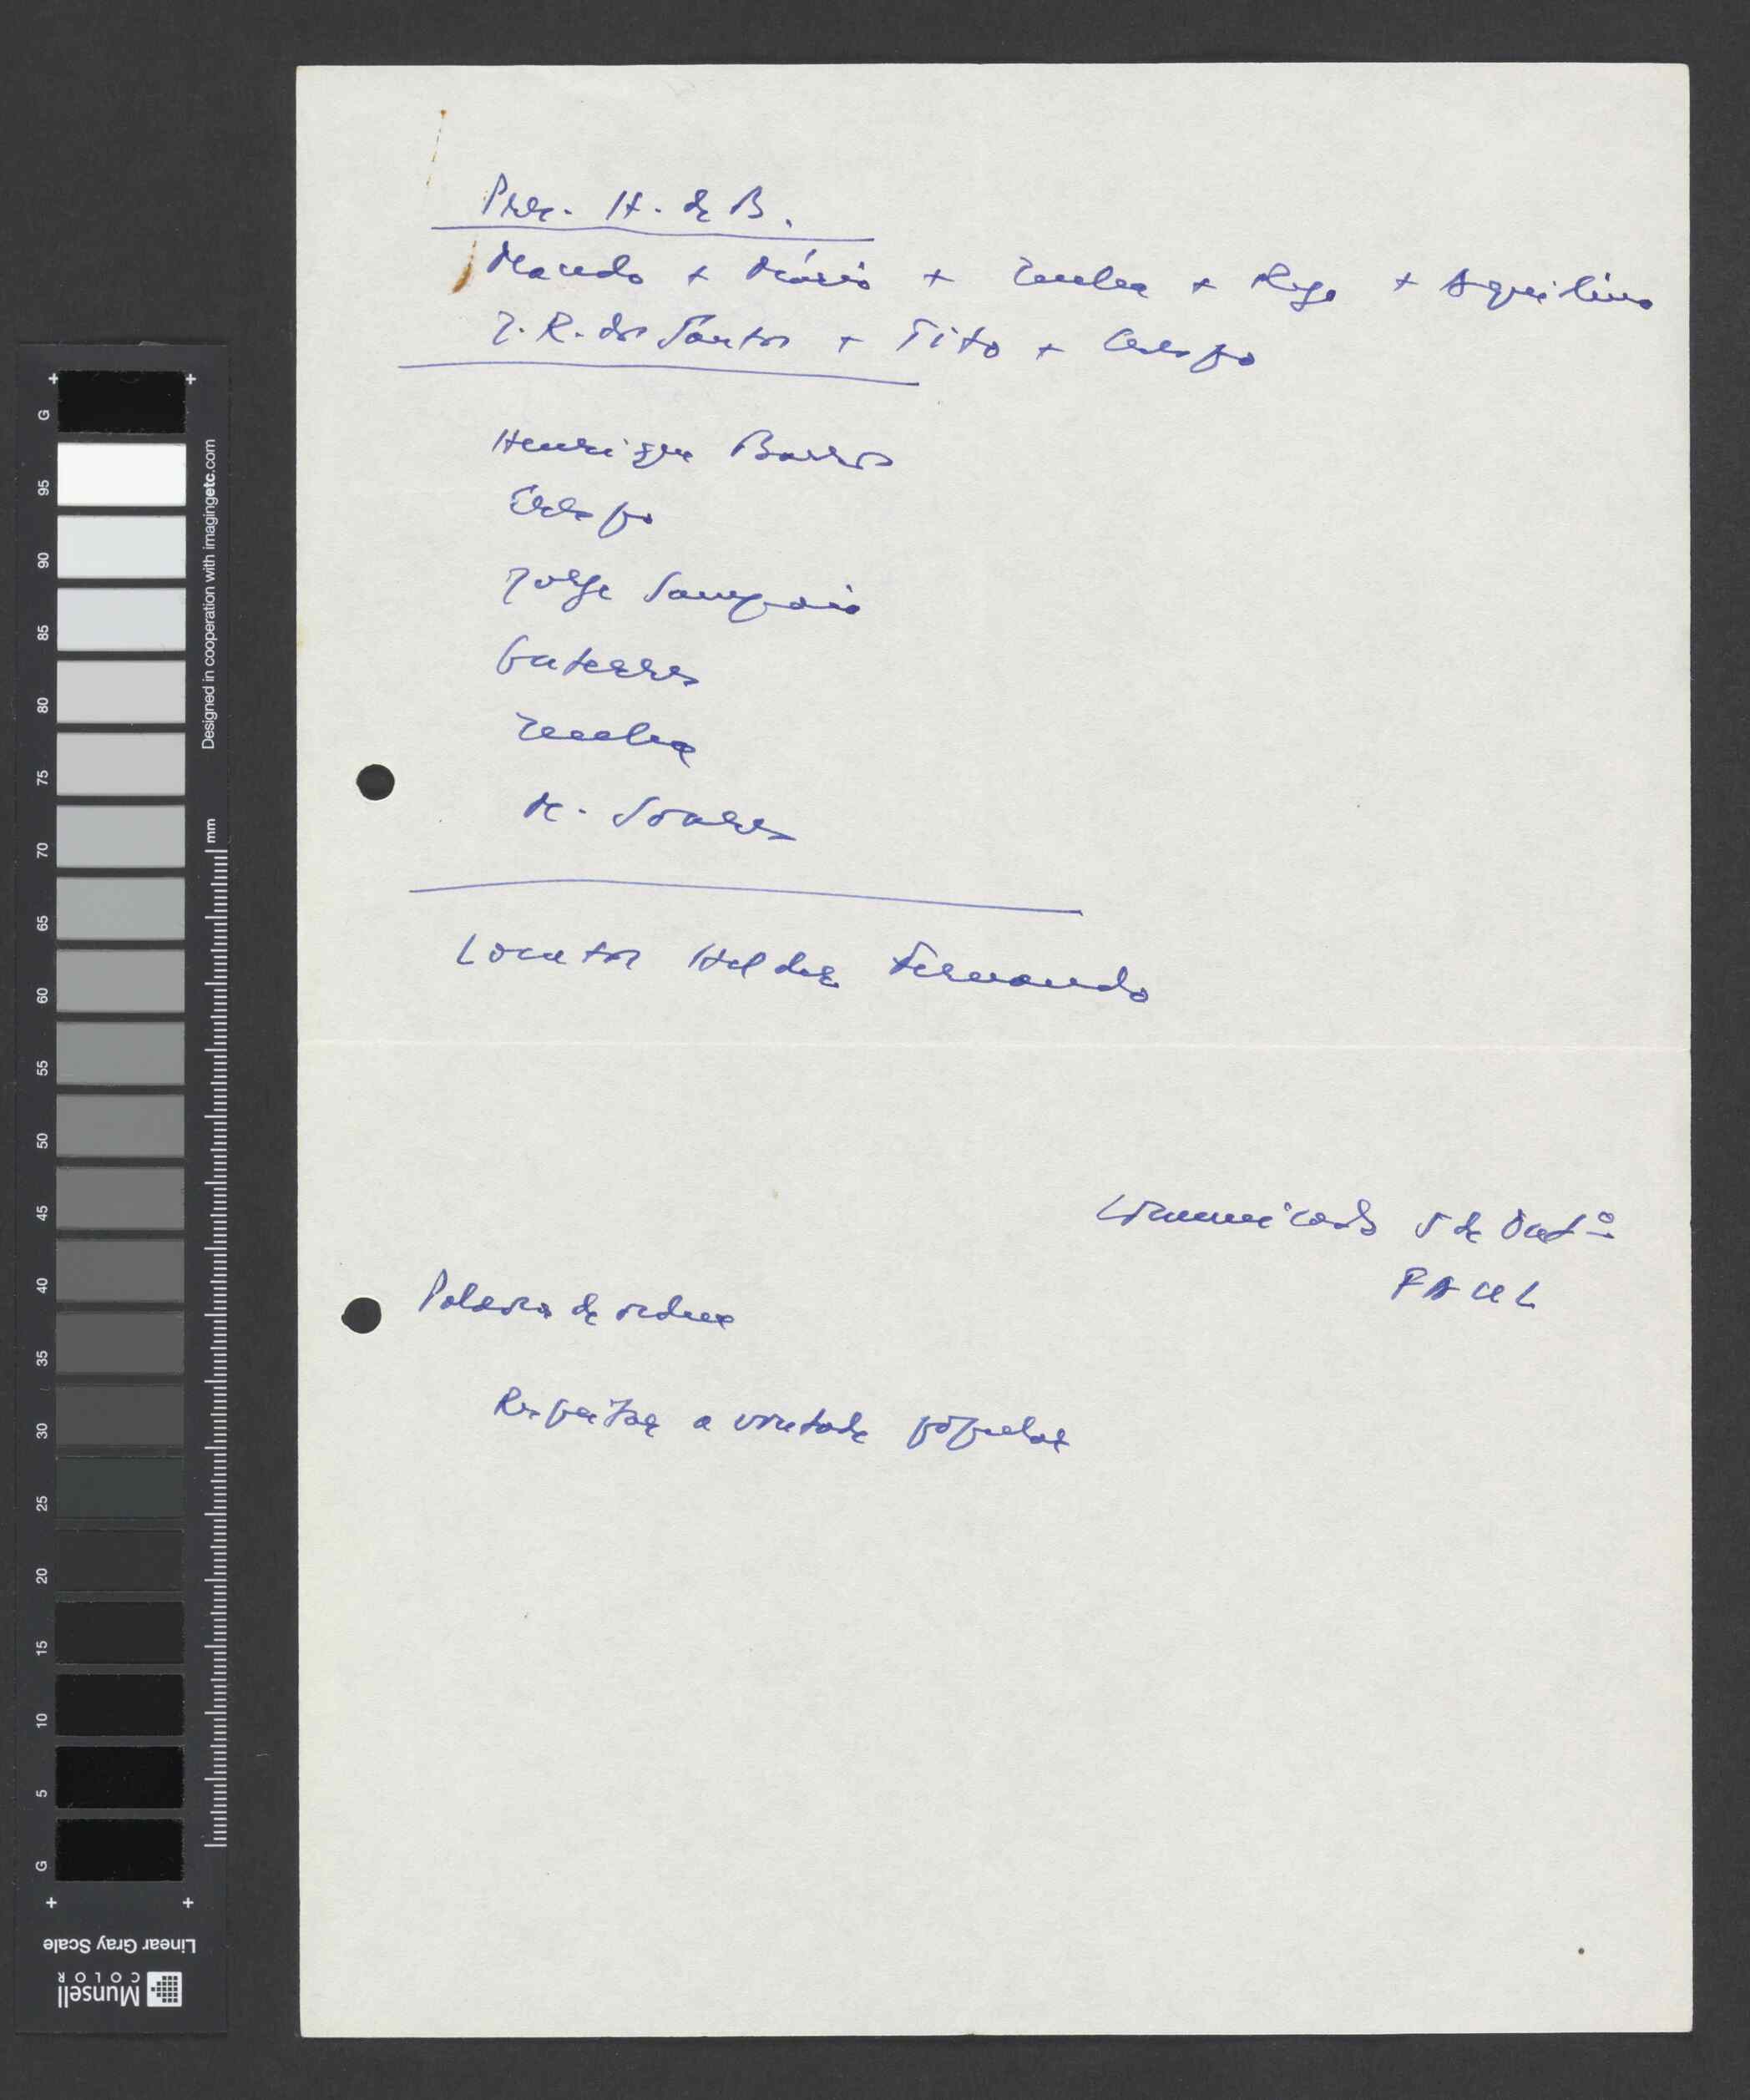 Pres. H. de B.
Macedo + Mário + Zenha + Rego + Aquilino
J. R. dos Santos + Tito + Crespo
Henrique Barros
Crespo
Jorge Sampaio
Guterres
Zenha
M. Soares
Locutor Helder Fernando
Comunicado 5 de Outº
FAUL
Palavra de ordem
Respeitar a vontade popular
G
95
90
85
80
75
70
65
60
55
50
45
40
35
30
25
20
15
10
5
G
Designed in cooperation with imagingetc.com
mm
Linear Gray Scale
Munsell
COLOR